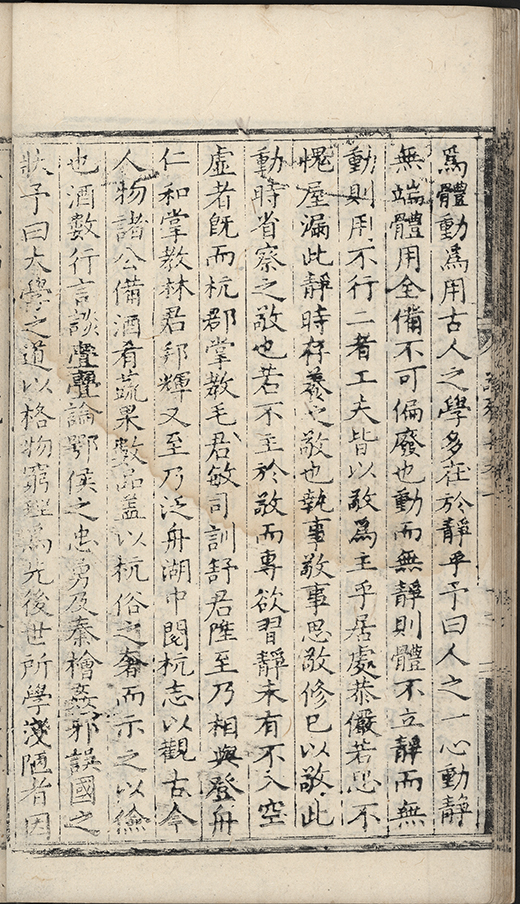 爲體動爲用古人之學多在於靜乎予曰人之一心動靜
無端體用全備不可偏廢也動而無靜則體不立靜而無
動則用不行二者工夫皆以敬爲主乎居處恭儼若思不
愧屋漏此靜時存養之敬也執事敬事思敬修已以敬此
動時省察之敬也若不主於敬而專欲習靜未有不入空
虛者旣而杭郡掌敎毛君敏司訓舒君陞至乃相與登舟
仁和掌教林君邦輝又至乃泛舟湖中閱杭志以觀古今
人物諸公備酒肴蔬果數品盖以杭俗之奢而示之以儉
也酒數行言談亹亹論鄂侯之忠勇及秦檜姦邪誤國之
狀予曰大學之道以格物窮理爲先後世所學淺陋者因